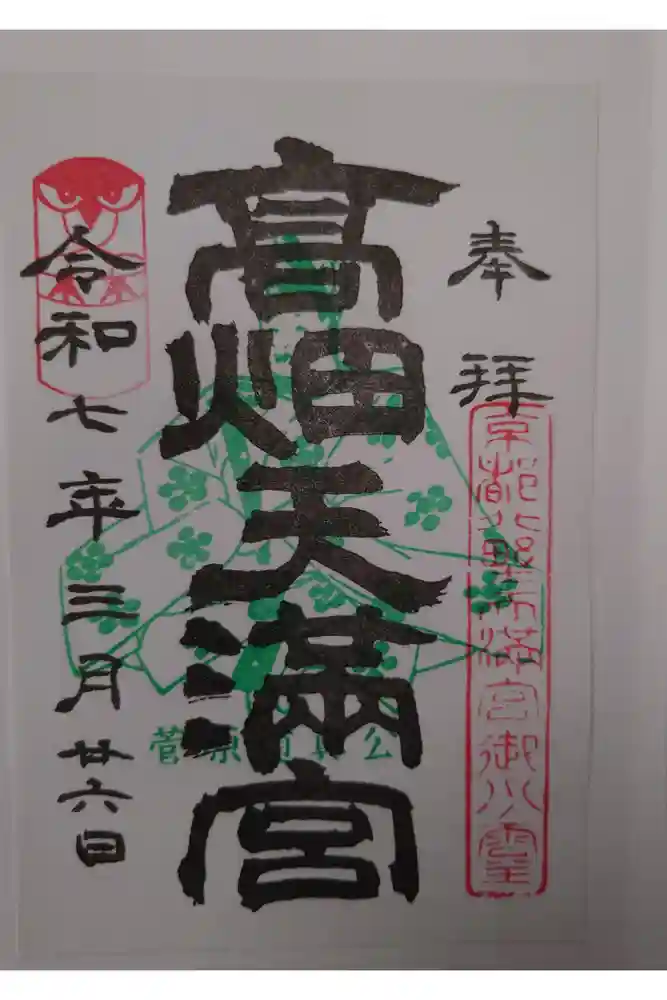 奉拝
京都北野天満宮御分霊
高畑天満宮
菅原道真公
令和七年三月廿六日